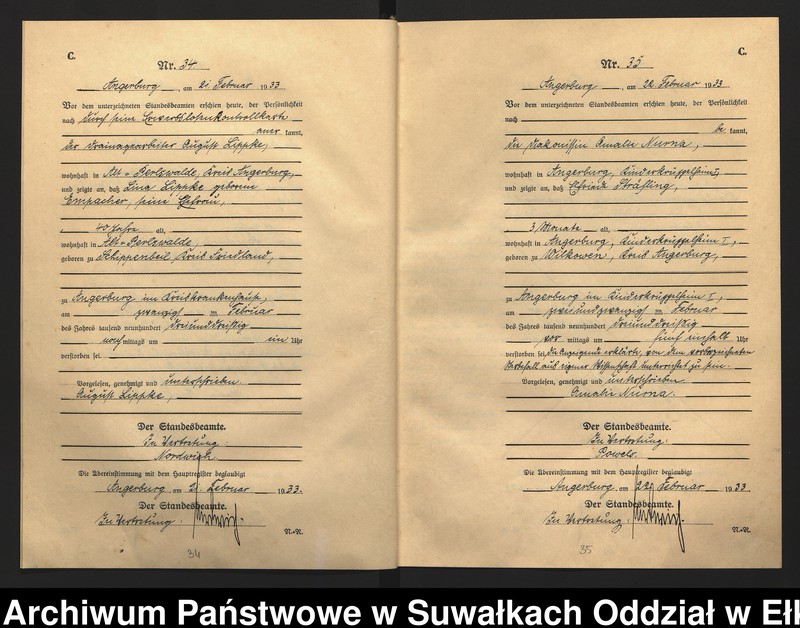 C.
Nr. 34
Angerburg, am 21. Februar 1933
Vor dem unterzeichneten Standesbeamten erschien heute, der Persönlichkeit
nach durch seine Erwerbslosenkontrollkarte
aner kannt,
der Drainagearbeiter August Lippke,
wohnhaft in Alt-Perlswalde, Kreis Angerburg,
und zeigte an, daß Lina Lippke geborene
Empacher, seine Ehefrau,
40 Jahre alt,
wohnhaft in Alt-Perlswalde,
geboren zu Schippenbeil, Kreis Friedland,
zu Angerburg im Kreiskrankenhaus,
am zwanzigsten Februar
des Jahres tausend neunhundert dreiunddreißig
nachmittags um ein Uhr
verstorben sei.
Vorgelesen, genehmigt und unterschrieben.
August Lippke,
Der Standesbeamte.
In Vertretung:
Nordwich
Die Übereinstimmung mit dem Hauptregister beglaubigt
Angerburg, am 21. Februar 1933.
Der Standesbeamte.
In Vertretung:
N.-R.
34
C.
Nr. 35
Angerburg, am 22. Februar 1933
Vor dem unterzeichneten Standesbeamten erschien heute, der Persönlichkeit
nach
be kannt,
die Diakonissin Amalie Nurna,
wohnhaft in Angerburg, Kinderkrüppelheim I,
und zeigte an, daß Elfriede Sträßling,
3 Monate alt,
wohnhaft in Angerburg, Kinderkrüppelheim I,
geboren zu Wilkowen, Kreis Angerburg,
zu Angerburg im Kinderkrüppelheim I,
am zweiundzwanzigsten Februar
des Jahres tausend neunhundert dreiunddreißig
vormittags um fünf einhalb Uhr
verstorben sei, die Anzeigende erklärte, von dem vorbezeichneten
Sterbefall aus eigener Wissenschaft unterrichtet zu sein.
Vorgelesen, genehmigt und unterschrieben
Amalie Nurna.
Der Standesbeamte.
In Vertretung:
Die Übereinstimmung mit dem Hauptregister beglaubigt
Angerburg, am 22. Februar 1933.
Der Standesbeamte.
In Vertretung:
N.-R.
35
Archiwum Państwowe w Suwałkach Oddział w Ełk